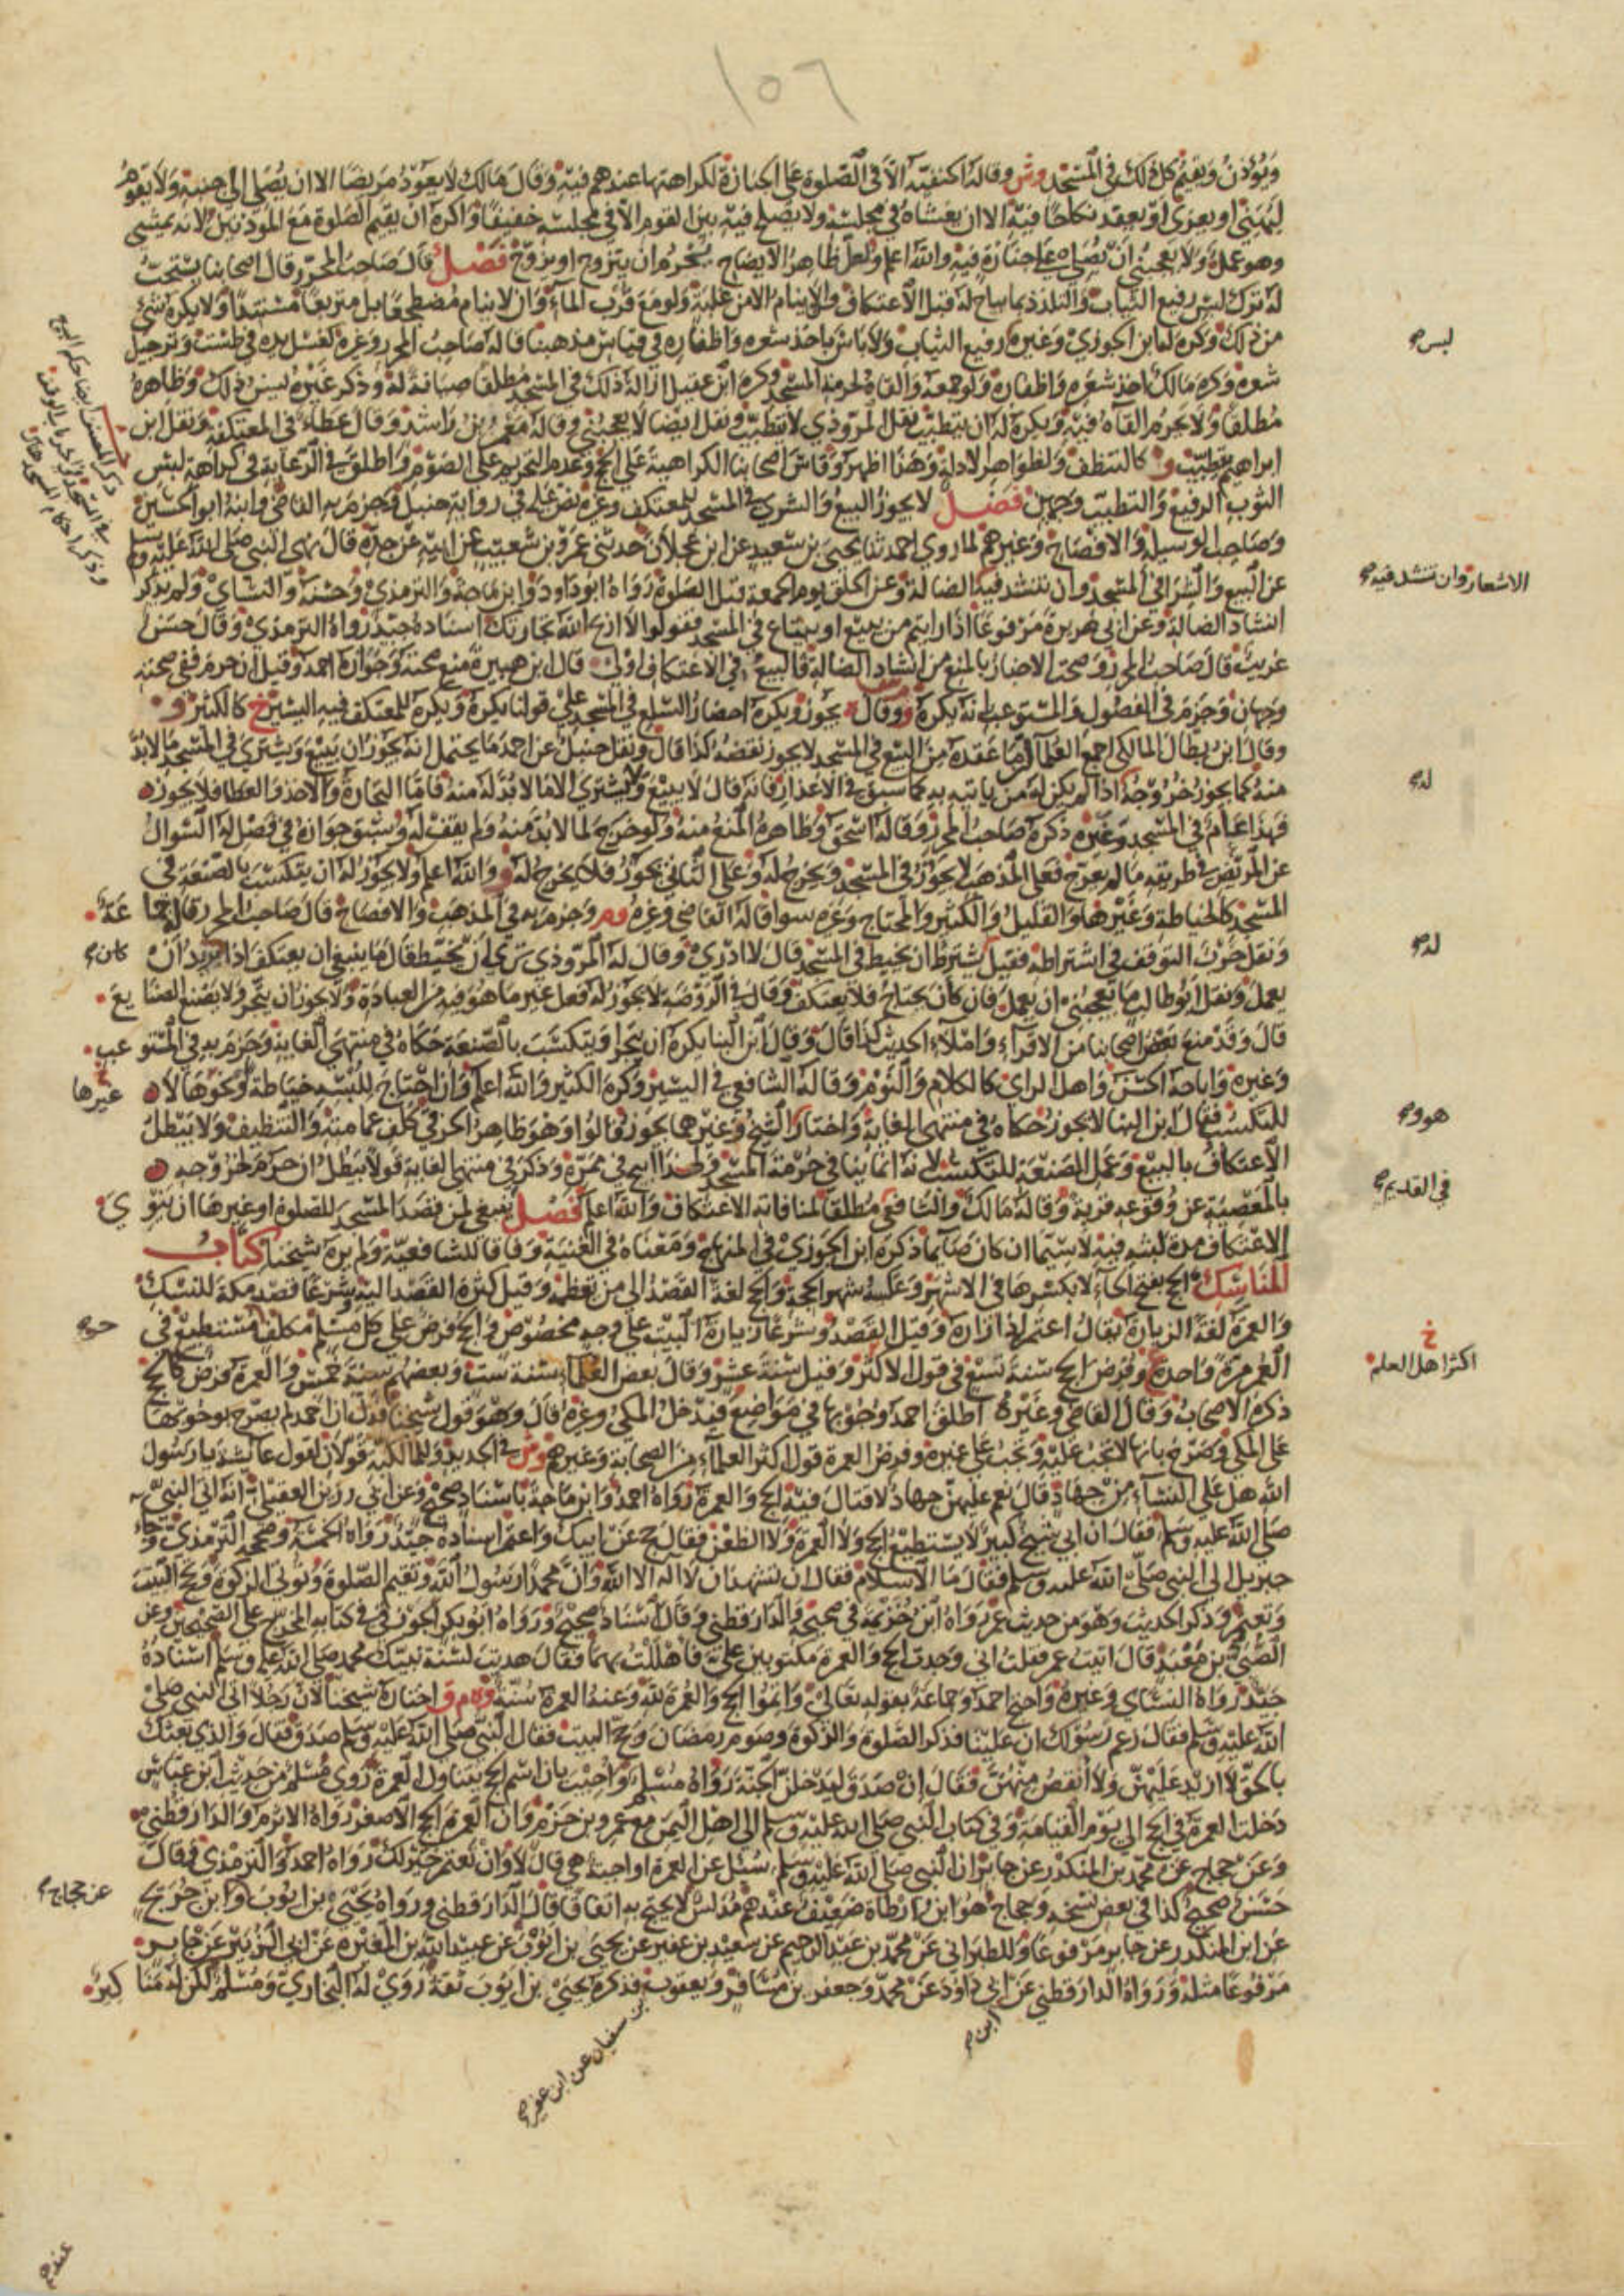 ١٥٦
ويؤذن ويقيم كل ذلك في المسجد وش وقاله الحنفية الا في الصلوة على الجنازة لكراهتها عندهم فيه وقال مالك لا يعود مريضا الا ان يصلي الى جنبه ولا يقوم
ليهني او يعزي او يعقد نكاحا فيه الا ان يغشاه في مجلسه ولا يصلح فيه بين القوم الا في مجلسه خفيفا واكره ان يقيم الصلوة مع المؤذنين لانه يمشي
وهو عمله ولا يعجبني ان يصلي على جنازة فيه والله اعلم ولعل ظاهر الايضاح يحرم ان يتزوج او يزوج فصل قال صاحب المحرر قال اصحابنا يستحب
له ترك لبس رفيع الثياب والتلذذ بما يباح له قبل الاعتكاف والا ينام الا من غلبة ولو مع قرب الماء وان لا ينام مضطجعا بل متربعا مستندا ولا يكره شي
من ذلك وكره لها ابن الجوزي وغيره رفيع الثياب ولا باس باخذ شعره واظفاره في قياس مذهبنا قاله صاحب المحرر وغيره كغسل يده في طست وترجيل
شعره وكره مالك اخذ شعره واظفاره ولو جمعه والقاه لحرمة المسجد وكره ابن عقيل ازالة ذلك في المسجد مطلقا صيانة له وذكر غيره يسن ذلك وظاهره
مطلقا ولا يحرم القاه فيه ويكره له ان يتطيب نقل المروذي لا يتطيب ونقل ايضا لا يعجبني وقاله معمر بن راشد وقال عطاء في المعتكفة ونقل ابن
ابراهيم يتطيب و كالتنظف ولظواهر الادلة وهذا اظهر وقاس اصحابنا الكراهية على الحج وعدم التحريم على الصوم واطلق في الرعاية في كراهة لبس
الثوب الرفيع والتطيب وجهين فصل لا يجوز البيع والشرى في المسجد للمعتكف وغيره نص عليه في رواية حنبل وجزم به القاضي وابنه ابو الحسين
وصاحب الوسيلة والافصاح وغيرهم لما روى احمد ثنا يحيى بن سعيد عن ابن عجلان حدثني عمرو بن شعيب عن ابيه عن جده قال نهى النبي صلى الله عليه وسلم
عن البيع والشرا في المسجد وان تنشد فيه الضالة وعن الحلق يوم الجمعة قبل الصلوة رواه ابو داود وابن ماجة والترمذي وحسنه والنساي ولم يذكر
انشاد الضالة وعن ابي هريرة مرفوعا اذا رايتم من يبيع او يبتاع في المسجد فقولوا لا اربح الله تجارتك اسناده جيد رواه الترمذي وقال حسن
غريب قال صاحب المحرر وصحت الاخبار بالمنع من انشاد الضالة فالبيع في الاعتكاف اولى قال ابن هبيرة منع صحته وجوازه احمد وقيل ان حرم ففي صحته
وجهان وجزم في الفصول والمستوعب بانه يكره ووقال يجوز ويكره احضار السلع في المسجد على قولنا يكره ويكره للمعتكف فيه اليسير خ كالكثير و
وقال ابن بطال المالكي اجمع العلما ان ما عقده من البيع في المسجد لا يجوز نقضه كذا قال ونقل حنبل عن احمد ما يحتمل انه يجوز ان يبيع ويشتري في المسجد ما لا بد
منه كما يجوز خروجه اذا لم يكن له من ياتيه به كما سبق في الاعذار فانه قال لا يبيع ولا يشتري الا ما لا بد له منه فاما التجارة والاخذ والعطا فلا يجوز
فهذا عام في المسجد وغيره ذكره صاحب المحرر وقاله اسحق وظاهره المنع منه ولو خرج لما لا بد منه ولم يقف له وسبق جوازه في فصل له السوال
عن المريض في طريقه ما لم يعرج فعلى المذهب لا يجوز في المسجد ويخرج له وعلى الثاني يجوز فلا يخرج له و والله اعلم ولا يجوز له ان يتكسب بالصنعة في
المسجد كالخياطة وغيرها والقليل والكثير والمحتاج وغيره سوا قاله القاضي وغيره وم وجزم به في المذهب والافصاح قال صاحب المحرر قاله جماعة
ونقل حرب التوقف في اشتراطه فقيل يشترط ان يخيط في المسجد قال لا ادري وقال له المروذي ترى ان يخيط قال ما ينبغي ان يعتكف اذا كان يريد ان
يعمل ونقل ابو طالب ما يعجبني ان يعمل فان كان يحتاج فلا يعتكف وقال في الروضة لا يجوز له فعل غير ما هو فيه من العبادة ولا يجوز ان يتجر ولا يصنع الصنايع
قال وقد منع بعض اصحابنا من الاقراء واملاء الحديث كذا قال وقال ابن البنا يكره ان يتجر او يتكسب بالصنعة حكاه في منتهى الغاية وجزم به في المستوعب
وغيره واباحه الحسن واهل الراى كالكلام والنوم وقاله الشافعي في اليسير وكره الكثير والله اعلم وان احتاج للبسه خياطة ونحوها لا
للتكسب فقال ابن البنا لا يجوز حكاه في منتهى الغاية واختار الشيخ وغيرهما يجوز قالوا وهو ظاهر الخرقي كلف عمامته والتنظيف ولا يبطل
الاعتكاف بالبيع وعمل الصنعة للتكسب لانه انما ينافي حرمة المسجد ولهذا ابيح في ممره وذكر في منتهى الغاية قولا يبطل ان حرم لخروجه
بالمعصية عن وقوعه قربة وقاله مالك والشافعي مطلقا لمنافاته الاعتكاف والله اعلم فصل ينبغي لمن قصد المسجد للصلوة او غيرها ان ينوي
الاعتكاف مدة لبثه فيه لا سيما ان كان صايما ذكره ابن الجوزي في المنهاج ومعناه في الغنية وفاقا للشافعية ولم يره شيخنا كتاب
المناسك الحج بفتح الحاء لا بكسرها في الاشهر وعكسه شهر الحجة والحج لغة القصد الى من تعظمه وقيل كثرة القصد اليه وشرعا قصد مكة للنسك
والعمرة لغة الزيارة يقال اعتمر اذا زاره وقيل القصد وشرعا زيارة البيت على وجه مخصوص فالحج فرض على كل مسلم مكلف مستطيع في
العمر مرة واحدة ع وفرض الحج سنة تسع في قول الاكثر وقيل سنة عشر وقال بعض العلماء سنة ست وبعضهم سنة خمس والعمرة فرض كالحج
ذكره الاصحاب وقال القاضي وغيره اطلق احمد وجوبها في مواضع فيدخل المكي وغيره قال وهو قول شيخنا قدل ان احمد لم يصرح بوجوبها
على المكي وصرح بانها لا تجب عليه وتجب على غيره وفرض العمرة قول اكثر العلماء من الصحابة وغيرهم وش في الجديد وللمالكية قولان لقول عائشة يا رسول
الله هل على النساء من جهاد قال نعم عليهن جهاد لا قتال فيه الحج والعمرة رواه احمد وابن ماجة باسناد صحيح وعن ابي رزين العقيلي انه اتى النبي
صلى الله عليه وسلم فقال ان ابي شيخ كبير لا يستطيع الحج ولا العمرة ولا الظعن فقال حج عن ابيك واعتمر اسناده جيد رواه الخمسة وصححه الترمذي وجاء
جبريل الى النبي صلى الله عليه وسلم فقال ما الاسلام فقال ان تشهد ان لا اله الا الله وان محمدا رسول الله وتقيم الصلوة وتؤتي الزكوة وتحج البيت
وتعتمر وذكر الحديث وهو من حديث عمر رواه ابن خزيمة في صحيحه والدارقطني وقال اسناد صحيح ورواه ابو بكر الجوزقي في كتابه المخرج على الصحيحين وعن
الضبي بن معبد قال اتيت عمر فقلت اني وجدت الحج والعمرة مكتوبين علي فاهللت بهما فقال هديت لسنة نبيك محمد صلى الله عليه وسلم اسناده
جيد رواه النساي وغيره واحتج احمد وجماعة بقوله تعالى واتموا الحج والعمرة لله وعنه العمرة سنة وه م ق اختاره شيخنا لان رجلا اتى النبي صلى
الله عليه وسلم فقال زعم رسولك ان علينا فذكر الصلوة والزكوة وصوم رمضان وحج البيت فقال النبي صلى الله عليه وسلم صدق فقال والذي بعثك
بالحق لا ازيد عليهن ولا انقص منهن فقال ان صدق ليدخلن الجنة رواه مسلم واجيب بان اسم الحج يتناول العمرة روى مسلم من حديث ابن عباس
دخلت العمرة في الحج الى يوم القيامة وفي كتاب النبي صلى الله عليه وسلم الى اهل اليمن مع عمرو بن حزم وان العمرة الحج الاصغر رواه الاثرم والدارقطني
وعن حجاج عن محمد بن المنكدر عن جابر ان النبي صلى الله عليه وسلم سئل عن العمرة اواجبة هي قال لا وان تعتمر خير لك رواه احمد والترمذي وقال
حسن صحيح كذا في بعض نسخه وحجاج هو ابن ارطاة ضعيف عندهم مدلس لا يحتج به اتفاقا قال الدارقطني ورواه يحيى بن ايوب وابن جريج
عن ابن المنكدر عن جابر مرفوعا وللطبراني عن محمد بن عبد الرحيم عن سعيد بن عفير عن يحيى بن ايوب عن عبيد الله بن المغيرة عن ابي الزبير عن جابر
مرفوعا مثله ورواه الدارقطني عن ابي داود عن محمد وجعفر بن مسافر ويعقوب فذكره يحيى بن ايوب ثقة روى له البخاري ومسلم لكن له مناكير
لبس
الاشعار وان تنشد فيه
له
له
هوو
في القديم
خ
اكثر اهل العلم
كان
غيرها
عن حجاج
ابن
بن سفيان عن ابن عفير
عنده